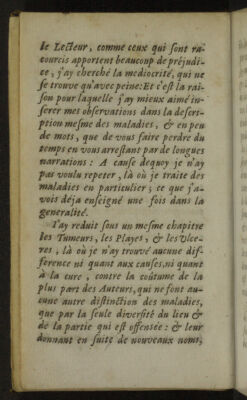 le Lecteur, comme ceux qui sont ra-
courcis apportent beaucoup de préjudi-
ce, j'ay cherché la mediocrité, qui ne
se trouve qu'avec peine: Et c'est la rai-
son pour laquelle j'ay mieux aimé in-
serer mes observations dans la descri-
ption mesme des maladies, & en peu
de mots, que de vous faire perdre du
temps en vous arrestant par de longues
narrations: A cause dequoy je n'ay
pas voulu repeter, là où je traite des
maladies en particulier; ce que j'a-
vois déja enseigné une fois dans la
generalité.
J'ay reduit sous un mesme chapitre
les Tumeurs, les Playes, & les Ulce-
res, là où je n'ay trouvé aucune dif-
ference ni quant aux causes, ni quant
à la cure, contre la coûtume de la
plus part des Auteurs, qui ne font au-
cune autre distinction des maladies,
que par la seule diversité du lieu &
de la partie qui est offensée: & leur
donnant en suite de nouveaux noms,